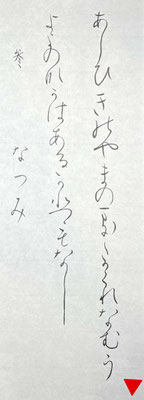 あしひきのやまのまにまにかくれなむう
きよのなかはあるかひもなし
なつみ